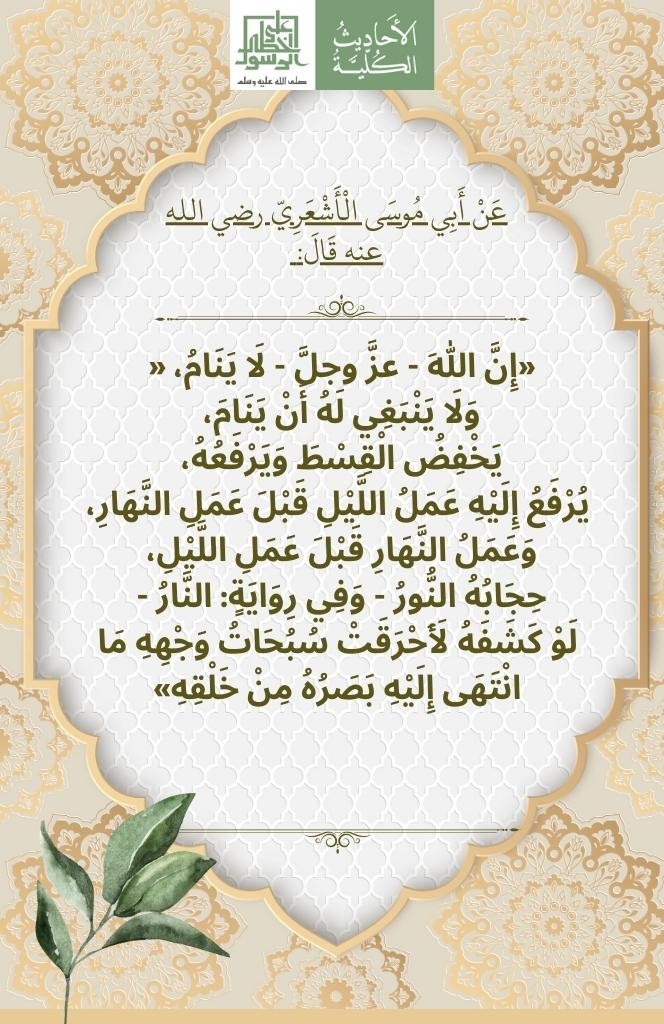 الأَحَادِيثُ
الكُلِّيَّةُ
على
خطى
الرسول
صلى الله عليه وسلم
عَنْ أَبِي مُوسَى الْأَشْعَرِيّ رضي الله
عنه قَالَ:
«إِنَّ اللهَ - عزَّ وجلَّ - لَا يَنَامُ، «
وَلَا يَنْبَغِي لَهُ أَنْ يَنَامَ،
يَخْفِضُ الْقِسْطَ وَيَرْفَعُهُ،
يُرْفَعُ إِلَيْهِ عَمَلُ اللَّيْلِ قَبْلَ عَمَلِ النَّهَارِ،
وَعَمَلُ النَّهَارِ قَبْلَ عَمَلِ اللَّيْلِ،
حِجَابُهُ النُّورُ - وَفِي رِوَايَةٍ: النَّارُ -
لَوْ كَشَفَهُ لَأَحْرَقَتْ سُبُحَاتُ وَجْهِهِ مَا
انْتَهَى إِلَيْهِ بَصَرُهُ مِنْ خَلْقِهِ»